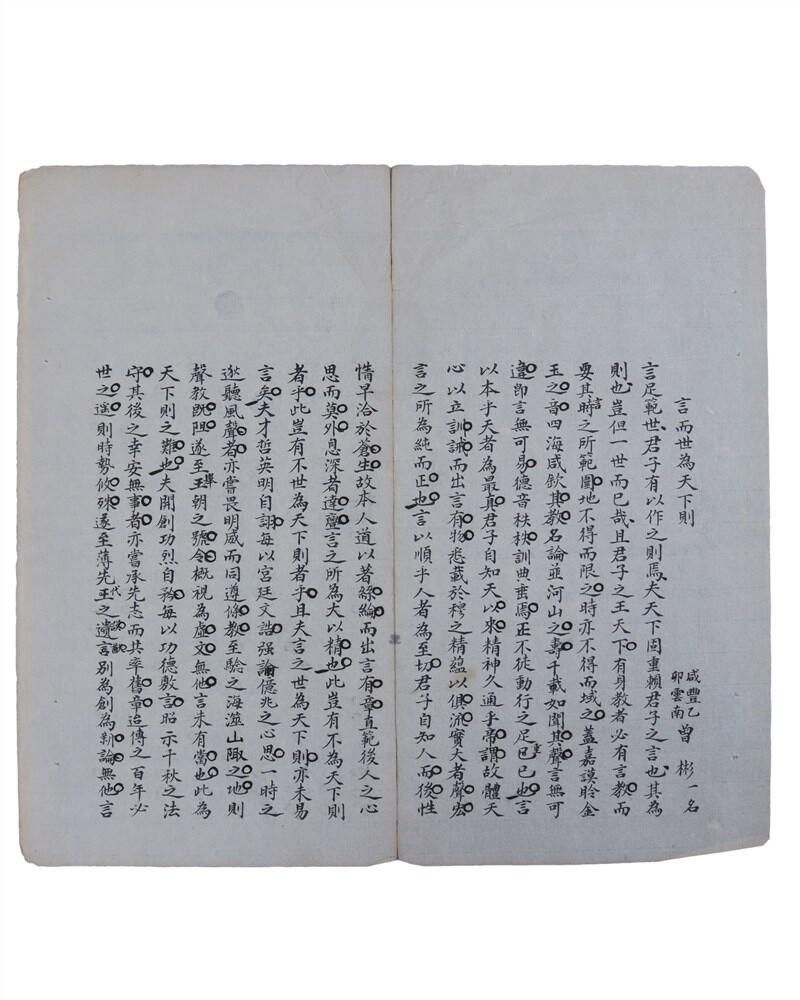 言而世為天下則
咸豐乙
卯雲南
曾彬 一名
言足範世君子有以作之則焉夫天下固重賴君子之言也其為
則也豈但一世而已哉且君子之王天下有身教者必有言教而
要其言時之所範圍地不得而限之時亦不得而域之蓋嘉謨聆金
玉之音四海咸欽其教名論並河山之壽千載如聞其聲言無可
違即言無可易德音秩秩訓典垂焉正不徒動行之足重已已也言
以本乎天者為最真君子自知天以來精神久通乎帝謂故體天
心以立訓誡而出言有物悉蘊於穆之精蘊以俱流實大者聲宏
言之所為純而正也言以順乎人者為至切君子自知人而後性
情早洽於蒼生故本人道以著絲綸而出言有章直範後人之心
思而莫外息深者達亹言之所為大以精也此豈有不為天下則
者乎此豈有不世為天下則者乎且夫言之世為天下則亦未易
言矣夫才哲英明自詡每以宮廷文誥强諭億兆之心思一時之
逖聽風聲者亦嘗畏明威而同遵條教至驗之海澨山陬之地則
聲教既阻遂至舉王朝之號令概視為虛文無他言未有當也此為
天下則之難也夫開創功烈自務每以功德敷言昭示千秋之法
守其後之幸安無事者亦嘗承先志而共率舊章迨傳之百年必
世之遠則時勢攸殊遂至薄先王之遺言別為創為新論無他言